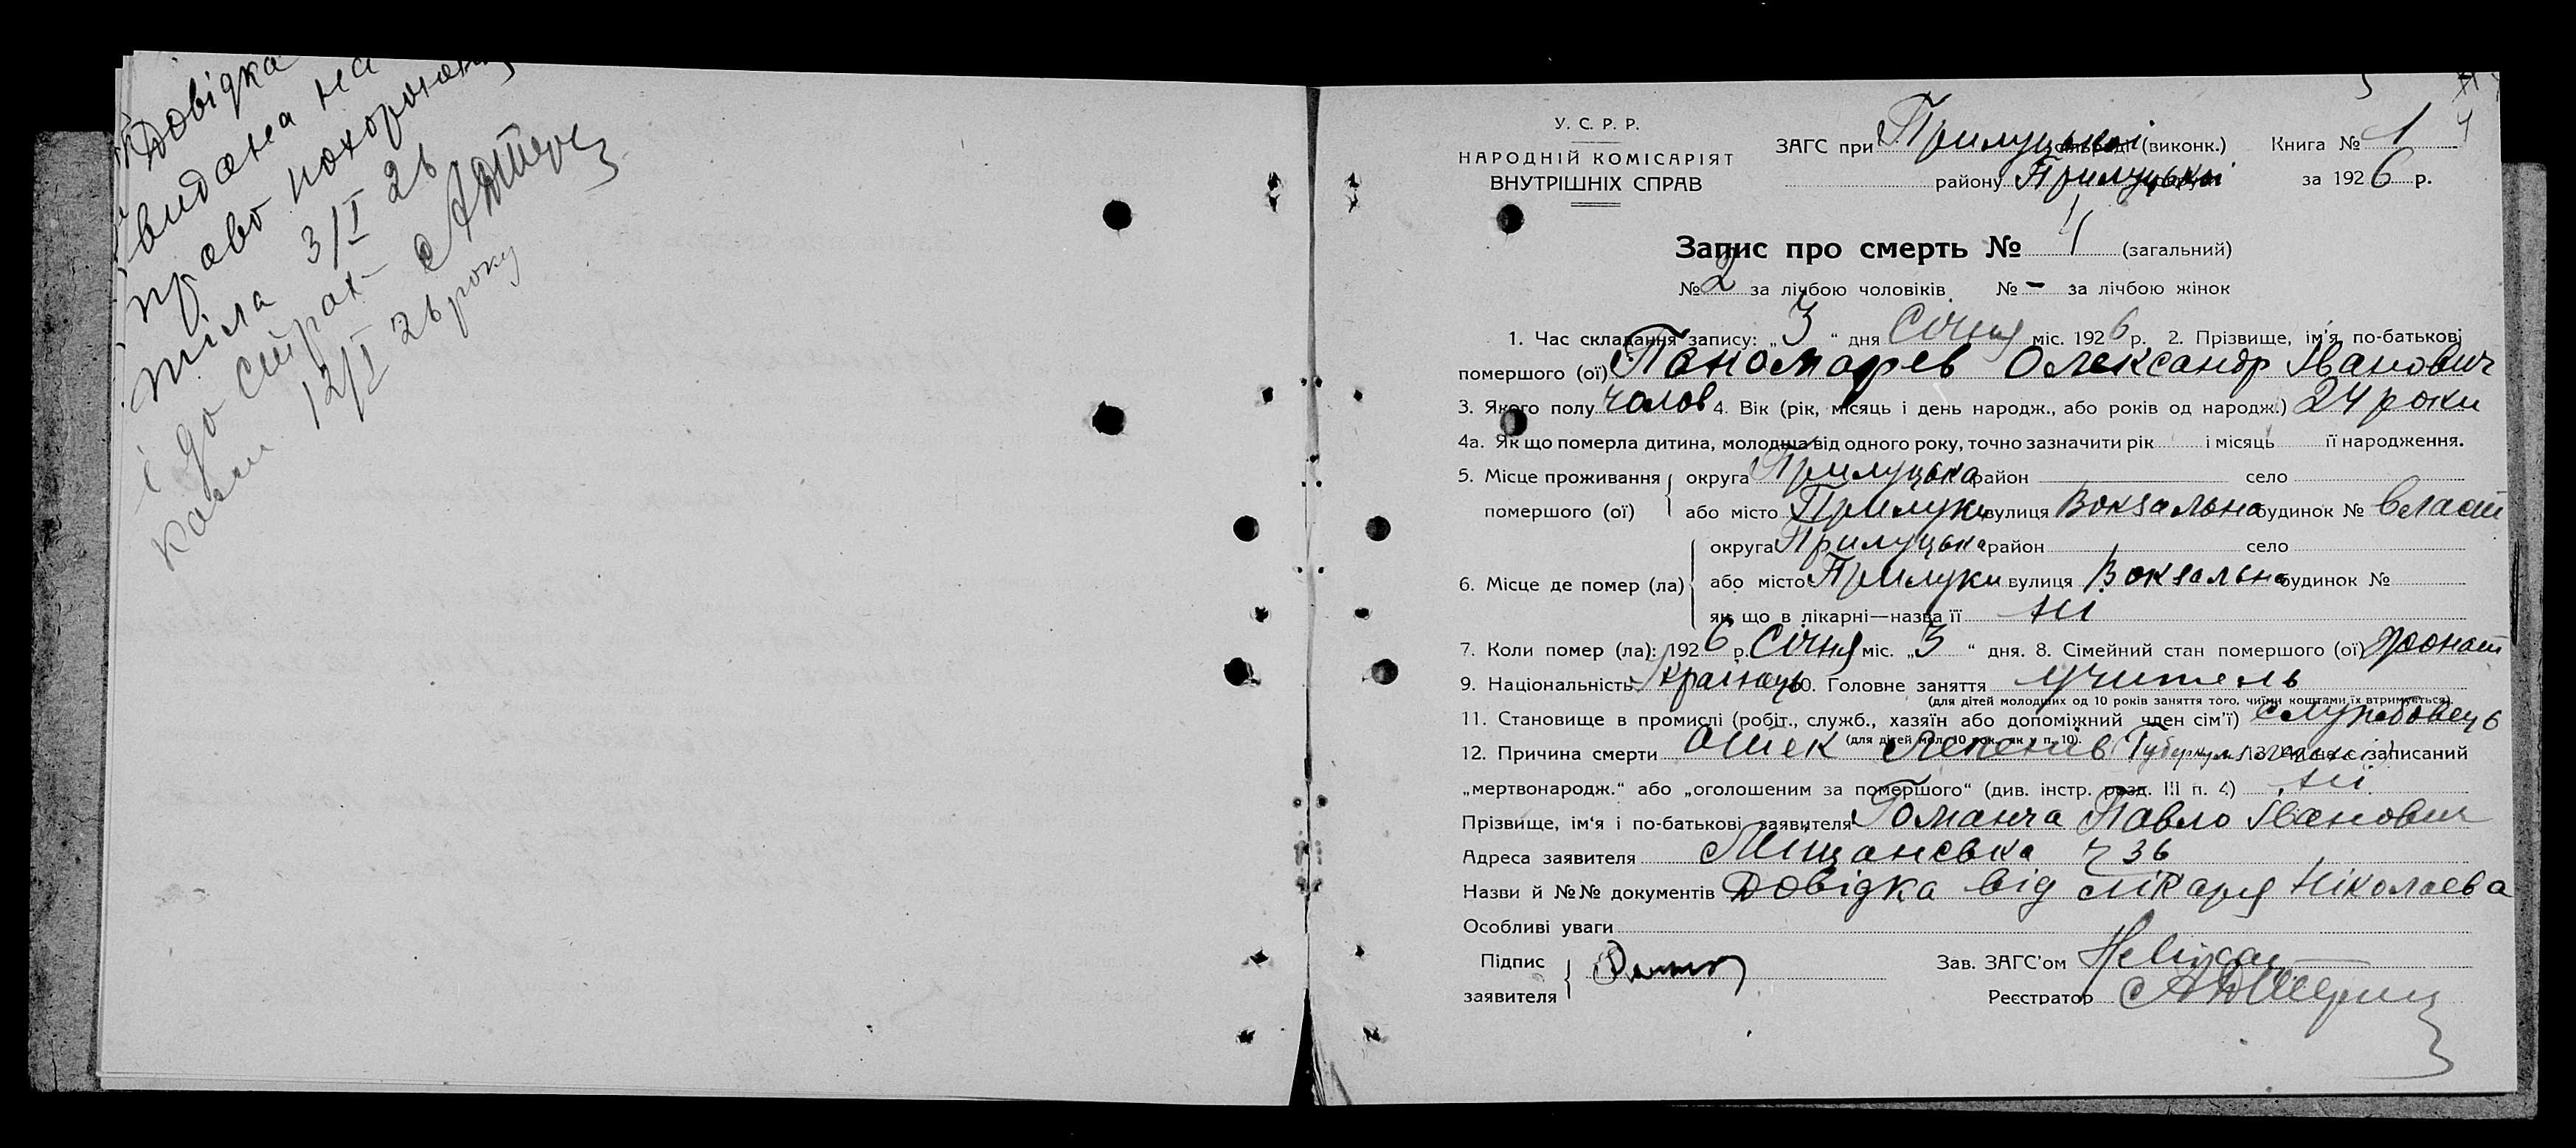 Довідка
видана на
право похорону
тіла 3/I 26
і до страх-
каси 12/I 26 року
У. С. Р. Р.
НАРОДНІЙ КОМІСАРІЯТ
ВНУТРІШНІХ СПРАВ
ЗАГС при Прилуцької (виконк.) Книга № 1
району Прилуцької за 1926 р.
Запис про смерть № 4 (загальний)
№ 2 за лічбою чоловіків. № - за лічбою жінок
1. Час складання запису: „3“ дня Січня міс. 1926 р. 2. Прізвище, ім'я, по-батькові
помершого (ої) Паномарев Олександр Іванович
3. Якого полу чолов 4. Вік (рік, місяць і день народж., або років од народж.) 24 роки
4а. Як що померла дитина, молодша від одного року, точно зазначити рік і місяць її народження.
5. Місце проживання помершого (ої) округа Прилуцька район село
або місто Прилуки вулиця Вокзальна будинок № власн
6. Місце де помер (ла) округа Прилуцька район село
або місто Прилуки вулиця Вокзальна будинок №
як що в лікарні—назва її ні
7. Коли помер (ла): 1926 р. Січня міс. „3“ дня. 8. Сімейний стан помершого (ої) жонат
9. Національність Українець 10. Головне заняття учитель
(для дітей молодших од 10 років заняття того, чиїми коштами їх втримується)
11. Становище в промислі (робіт., служб., хазяїн або допоміжний член сім'ї) службовець
(для дітей мол. 10 рок. як у п. 10).
12. Причина смерти Отек легенів записаний
„мертвонародж.“ або „оголошеним за помершого“ (див. інстр. розд. III п. 4) ні
Прізвище, ім'я і по-батькові заявителя Гоманча Павло Іванович
Адреса заявителя Міщанська ч 36
Назви й №№ документів Довідка від лікаря Ніколаєва
Особливі уваги
Підпис заявителя
Зав. ЗАГС'ом
Реєстратор